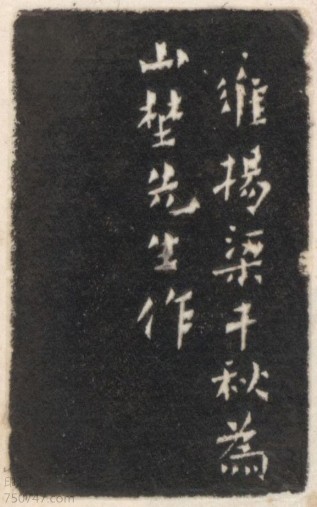 維揚梁千秋為
山埜先生作
750747.com